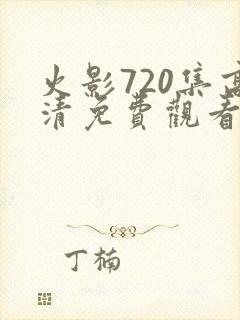 火影720集高
清免費觀看
丁楠